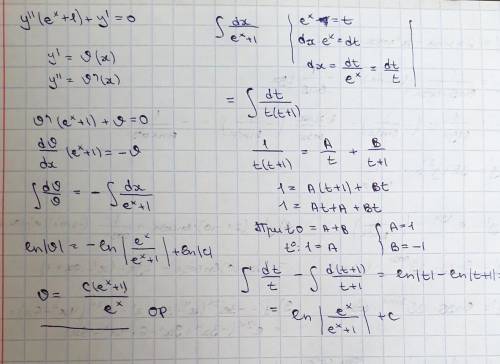 y''(eˣ+1)+y'=0
y' = ϑ(x)
y'' = ϑ'(x)
ϑ'(eˣ+1)+ϑ=0
dϑ/dx (eˣ+1) = -ϑ
∫ dϑ/ϑ = - ∫ dx/(eˣ+1)
ln|ϑ| = -ln|eˣ/(eˣ+1)| + ln|c|
ϑ = c(eˣ+1)/eˣ ОР
∫ dx/(eˣ+1)
eˣ = t
dx eˣ = dt
dx = dt/eˣ = dt/t
= ∫ dt/(t(t+1))
1/(t(t+1)) = A/t + B/(t+1)
1 = A(t+1) + Bt
1 = At + A + Bt
При t 0 = A+B
t⁰: 1 = A
{ A=1
B=-1
∫ dt/t - ∫ d(t+1)/(t+1) = ln|t| - ln|t+1| =
= ln|eˣ/(eˣ+1)| + c